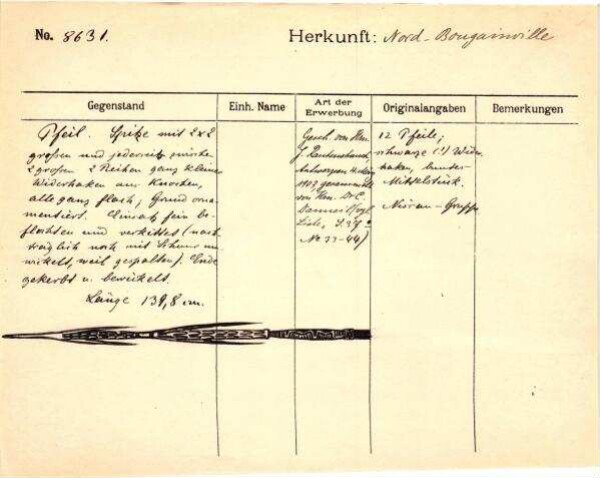 No. 8631.
Herkunft: Nord-Bougainville
Gegenstand
Einh. Name
Art der Erwerbung
Originalangaben
Bemerkungen
Pfeil. Spitze mit 2x2
großen und jederseits zwische
2 großen 2 Reihen ganz kleine
Widerhaken aus Knochen,
alle ganz flach, Grund orna-
mentiert. Einsatz fein be-
flochten und verkittet (nach-
träglich noch mit Schnur um-
wickelt, weil gespalten). Ende
gekerbt u. bewickelt.
Länge 139,8 cm.
Gesch. von Hrn.
J.
Antwerpen
1907, gesammelt
von Hrn. Dr. C.
Liste, S.
No 33-44)
12 Pfeile;
schwarze (!) Wider-
haken, bunter
Mittelstück.
Gruppe